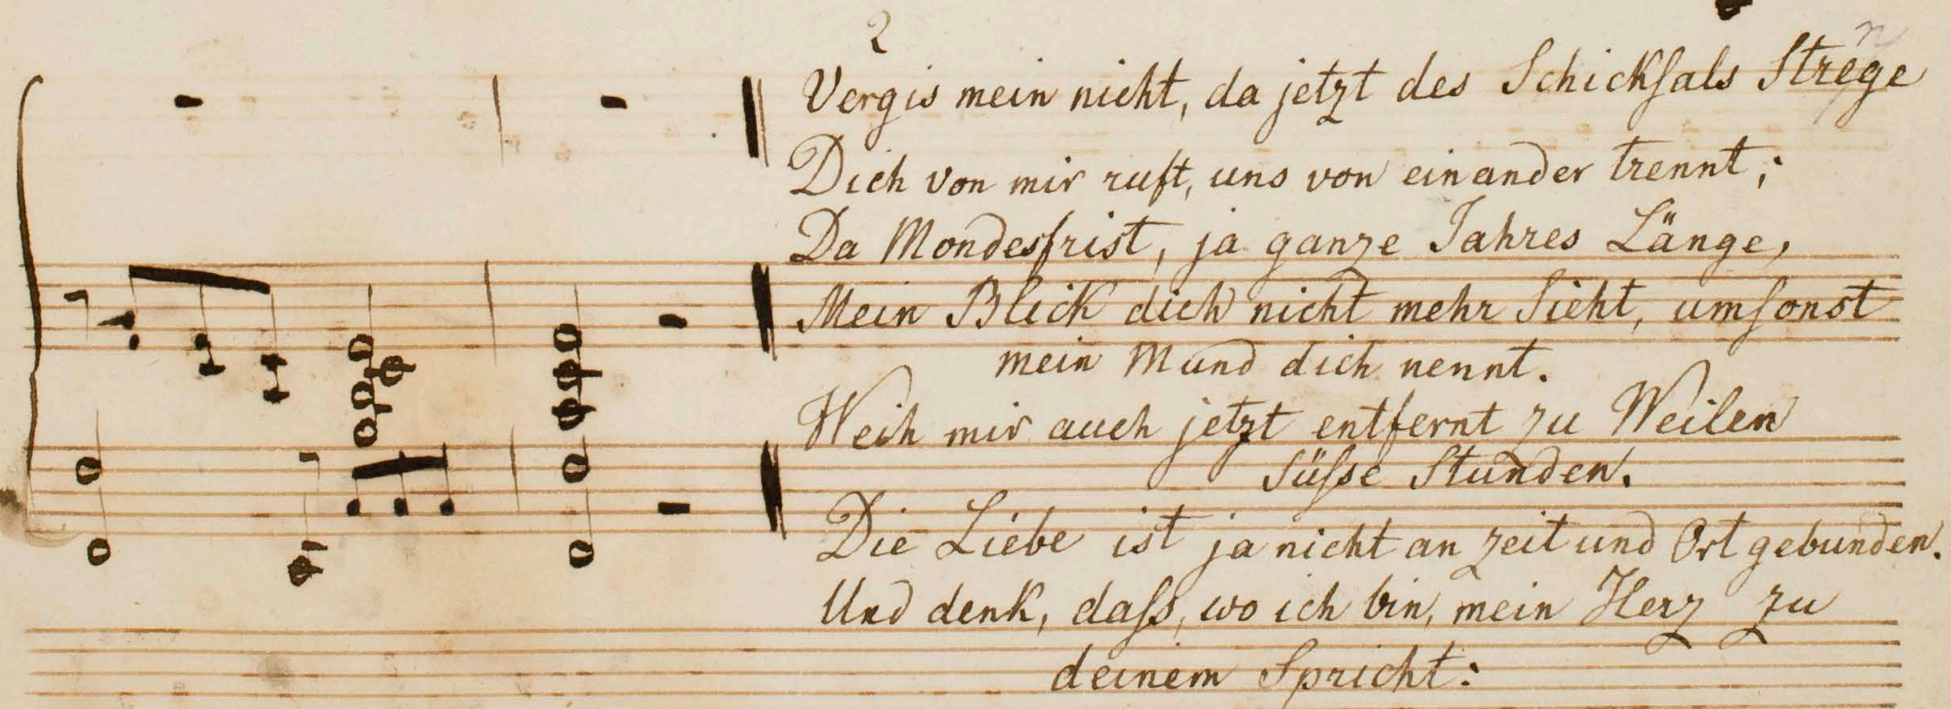 2
Vergis mein nicht, da jetzt des Schickſals Strege
n
Dich von mir ruft, uns von einander trennt;
Da Mondesfrist, ja ganze Jahres Länge,
Mein Blick dich nicht mehr Sieht, umſonst
mein Mund dich nennt.
Weih mir auch jetzt entfernt zu Weilen
Süſse Stunden.
Die Liebe ist ja nicht an zeit und Ort gebunden.
Und denk, daſs, wo ich bin, mein Herz zu
deinem Spricht: